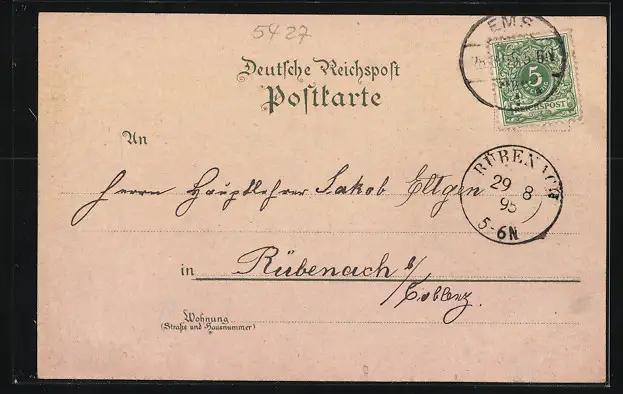 5427
EMS
5
REICHSPOST
Deutsche Reichspost
Postkarte
An
RÜBENACH
29 8
95
5-6N
Herrn Hauptlehrer Jakob Eltgen
in Rübenach b/
Coblenz.
Wohnung
(Straße und Hausnummer)